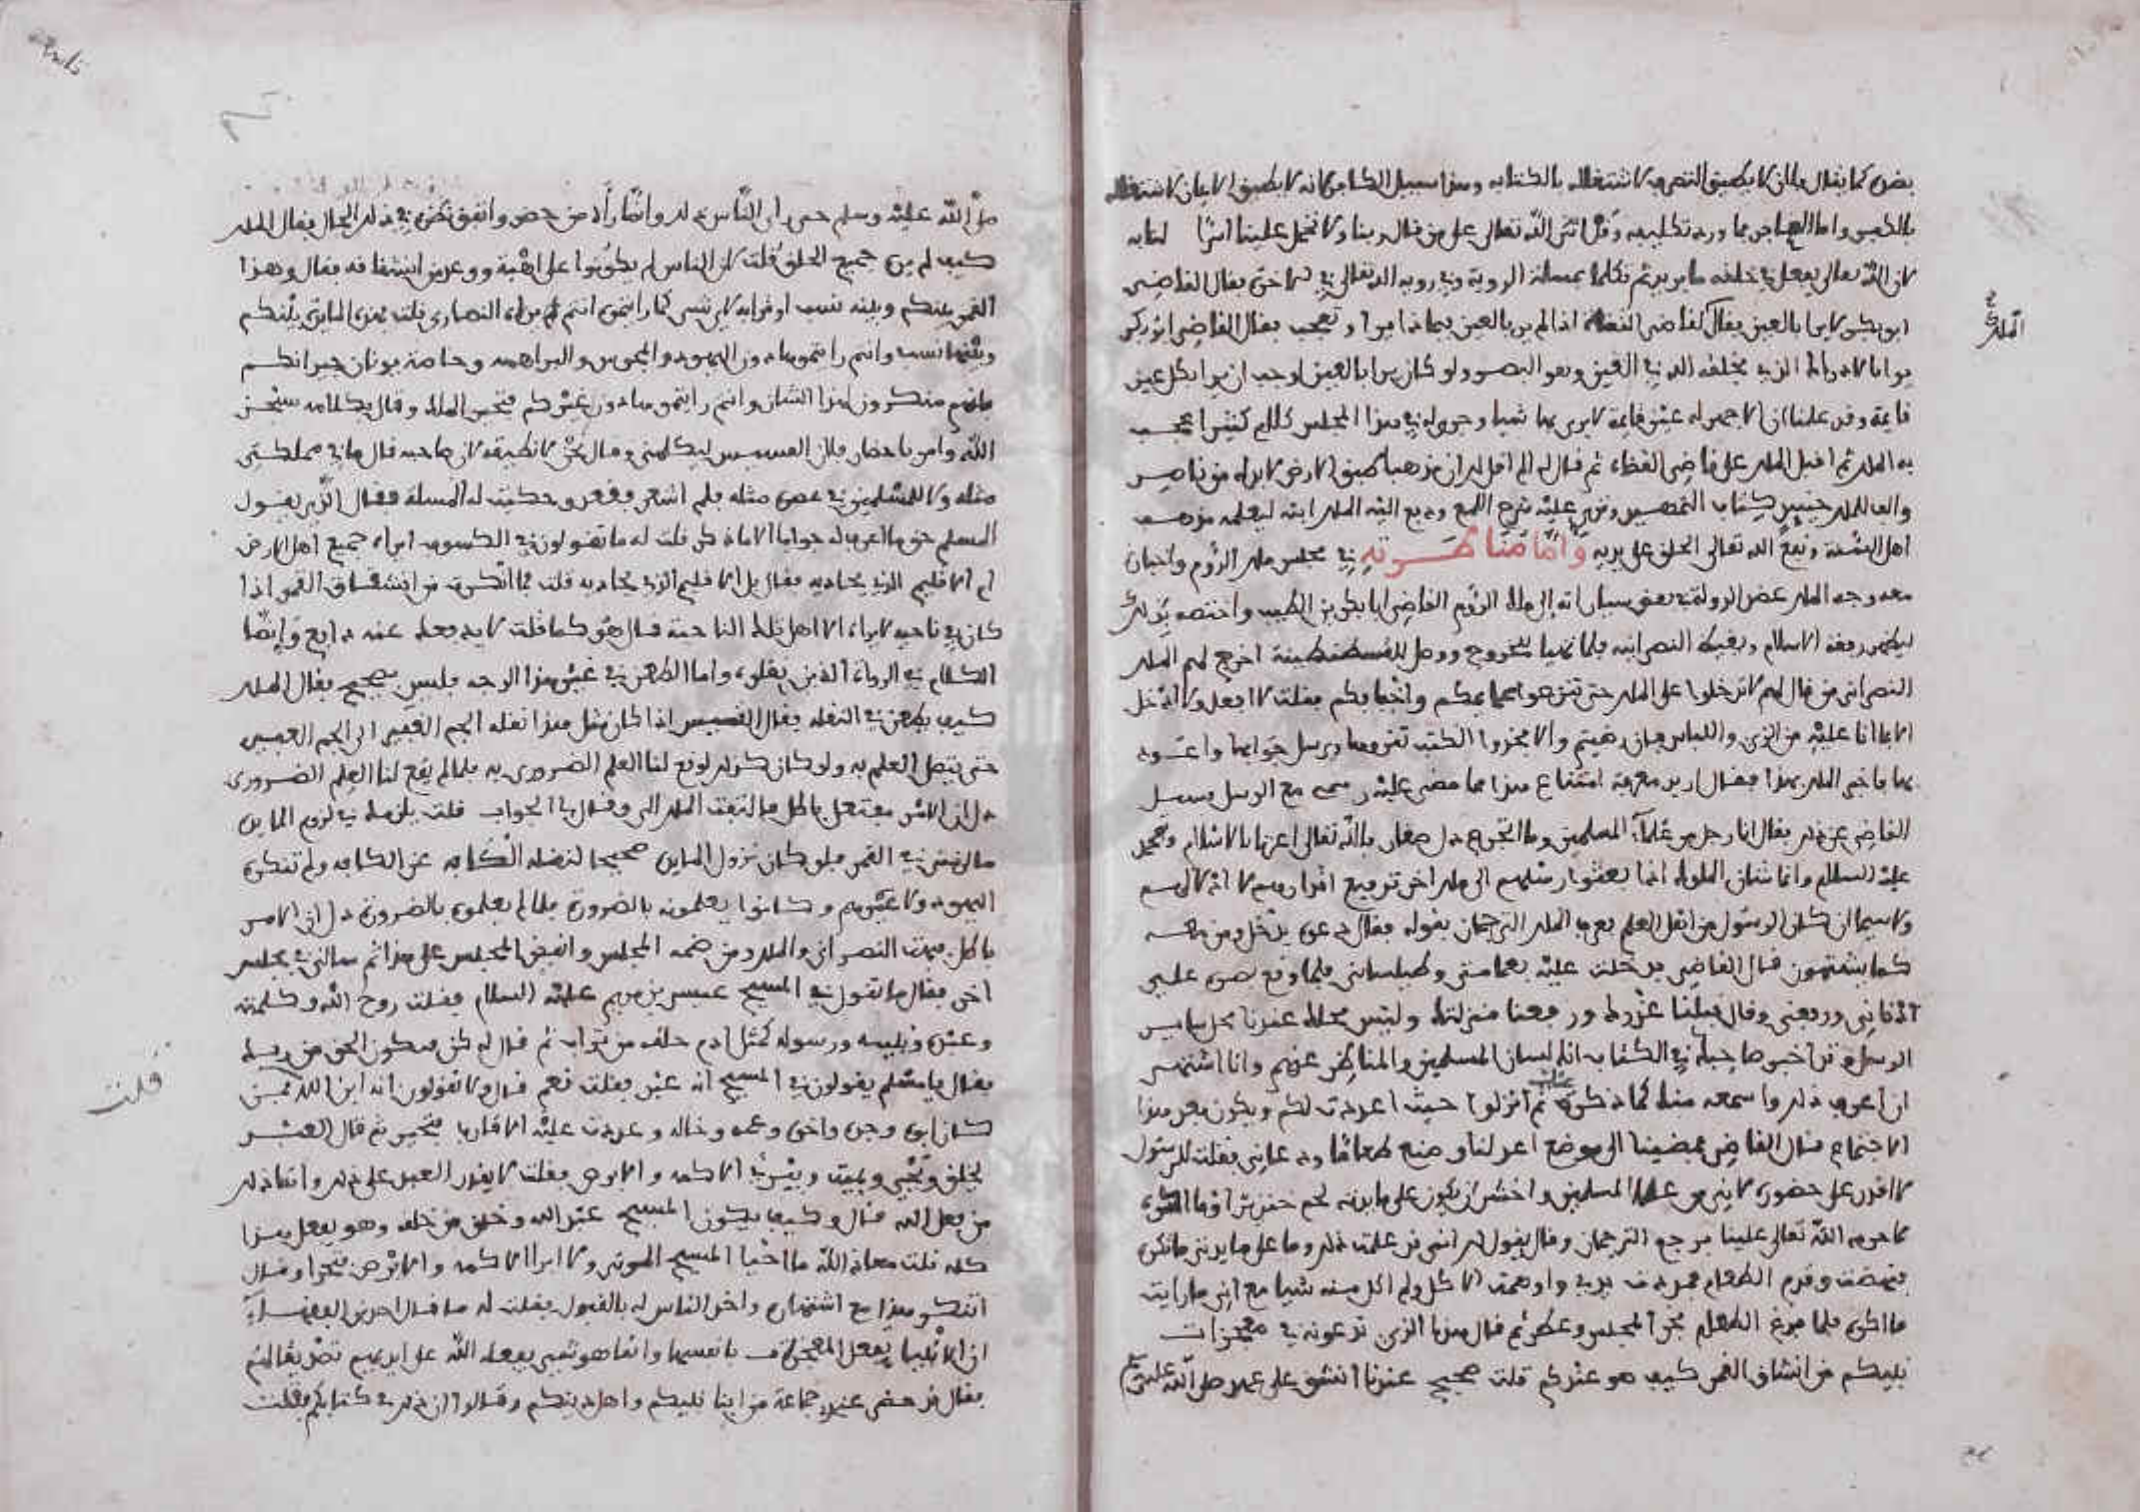 بضده كما يقال فلان لا يطيق التصرف لاشتغاله بالكتابة وهذا سبيل الكافر انه لا يطيق الايمان لاشتغاله
بالكفر واما العاجز فما ورد تكليفه وقد اثنى الله تعالى على من قال ربنا ولا تحمل علينا اصرا لنا به
لان الله تعالى يفعل في خلقه ما يريد ثم تكلما بمسئلة الروية وفي روية الله تعالى حتى فقال القاضي
ابو بكر لا يرا بالعين فقال لقاضي القضاة اذا لم ير بالعين بماذا يرا وتعجب فقال القاضي ابو بكر
يرا بالادراك الذي يخلقه الله في العين وهو البصر ولو كان يرا بالعين لوجب ان يرا بكل عين
قايمة وقد علمنا ان الاجهر له عين قايمة لا يرى بها شيا وجرى له في هذا المجلس كلام كثير اعجب
به الملك ثم اقبل الملك على قاضي القضاة ثم قال له الم اقل لك ان مذهبا طبق الارض لا بد له من ناصر
والف للملك حينيذ كتاب التمهيد وقرئ عليه شرح اللمع ودفع اليه الملك ابنه ليعلمه مذهب
اهل السنة ونفع الله تعالى الخلق على يديه واما مناظرته في مجلس ملك الروم واخباره
معه وجه الملك عضد الدولة في بعض سفاراته الى ملك الروم القاضي ابا بكر بن الطيب واختصه بذلك
ليظهر رفعة الاسلام ويغيظ النصرانية فلما تهيا للخروج ووصل للقسطنطينة اخرج لهم الملك
النصراني من قال لهم لا تدخلوا على الملك حتى تنزعوا عمايمكم واخفافكم فقلت لا افعل ولا ادخل
الا ما انا عليه من الزي واللباس فان رضيتم والا فخذوا الكتب تقرءوها ونرسل جوابها واعود
بها فاخبر الملك بهذا فقال اريد معرفة امتناع هذا مما مضى عليه رسمي مع الرسل فسيل
القاضي عن ذلك فقال انا رجل من علماء المسلمين وما تحبون ذل وصغار والله تعالى اعزنا بالاسلام وبمحمد
عليه السلام وانما شان الملوك اذا بعثوا رسلهم الى ملك اخر ترفيع اقدارهم لا اذلالهم
ولا سيما ان كان الرسول من اهل العلم فعرف الملك الترجمان بقوله فقال دعوه يدخل ومن معه
كما يشتهون قال القاضي فدخلت عليه بعمامتي وطيلساني فلما وقع بصره علي
ادناني ورفعني وقال قبلنا عذرك ورفعنا منزلتك وليس محلك عندنا محل ساير
الرسل وقد اخبر صاحبك في الكتاب انك لسان المسلمين والمناظر عنهم وانا اشتهي
ان اعرف ذلك واسمعه منك كما ذكره عنك ثم انزلوا حيث اعددت لكم ويكون بعد هذا
الاجتماع قال القاضي فمضينا الى موضع اعد لنا وصنع طعاما ودعاني فقلت للرسول
لا اقدر على حضوره لاني من علماء المسلمين واخشى ان يكون على مايدته لحم خنزير او ما اشبهه
مما حرمه الله تعالى علينا فرجع الترجمان وقال يقول لك انني قد علمت ذلك وما على مايدتي ما تكره
فنهضت وقدم الطعام فمددت يدي واوهمت الاكل ولم اكل منه شيا مع اني ما رايت
ما اكره فلما فرغ الطعام بخر المجلس وعطر ثم قال هذا الذي تدعونه في معجزات
نبيكم من انشقاق القمر كيف هو عندكم قلت صحيح عندنا انشق على عهد صلى الله عليه
الملك
صلى الله عليه وسلم حتى راى الناس ذلك وانما راه من حضر واتفق نظره في ذلك الحال فقال الملك
كيف لم يره جميع الخلق قلت لان الناس لم يكونوا على اهبة ووعد من انشقاقه فقال وهذا
القمر بينكم وبينه نسب او قرابة لاي شي كما رايتموه انتم لم يراه النصارى قلت فهذه المايدة بينكم
وبينها نسب وانتم رايتموها دون اليهود والمجوس والبراهمة وخاصة يونان جيرانكم
فانهم منكرون لهذا الشان وانتم رايتموها دون غيركم فتحير الملك وقال بكلامه سبحن
الله وامر باحضار فلان القسيس ليكلمني وقال نحن لا نطيقه لان صاحبه قال ما في مملكتي
مثله ولا للمسلمين في عصره مثله فلم اشعر وقعد وحكيت له المسئلة فقال الذي يقول
المسلم حق ما اعرف له جوابا الا ما ذكر قلت له ما تقولون في الكسوف ايراه جميع اهل الارض
ام الاقليم الذي يحاذيه فقال بل الاقليم الذي يحاذيه قلت فما انكرت من انشقاق القمر اذا
كان في ناحية لا يراه الا اهل تلك الناحية قال هو كما قلت لا يدفعك عنه دافع وايضا
الكلام في الرواة الذين نقلوه واما الطعن في غير هذا الوجه فليس بصحيح فقال الملك
كيف يطعن في النقلة فقال القسيس اذا كان مثل هذا نقله الجم الغفير الى الجم الغفير
حتى يتصل العلم به ولو كان كذلك لوقع لنا العلم الضروري به فلما لم يقع لنا العلم الضروري
دل ان الامر مفتعل باطل فالتفت الملك الي وقال ما الجواب قلت يلزمك في نزول المايدة
ما لزمني في القمر فلو كان نزول المايدة صحيحا لنقله الكافة عن الكافة ولم تنكره
اليهود ولا غيرهم وكانوا يعلمونه بالضرورة فلما لم يعلموه بالضرورة دل ان الامر
باطل فبهت النصراني والملك ومن ضمه المجلس وانفض المجلس على هذا ثم سالني في مجلس
اخر فقال ما تقول في المسيح عيسى بن مريم عليه السلام فقلت روح الله وكلمته
وعبده ونبيه ورسوله كمثل ادم خلقه من تراب ثم قال له كن فيكون الحق من ربك
فقال يا مسلم يقولون في المسيح انه عبد فقلت نعم قال ولا تقولون انه ابن الله فمن
كان ابوه وجده واخوه وعمه وخاله وعددت عليه الاقارب فتحير ثم قال العبد
يخلق ويحيي ويميت ويبرئ الاكمه والابرص فقلت لا يقدر العبد على ذلك وانما ذلك
من فعل الله قال وكيف يكون المسيح عبد الله وخلق من خلقه وهو يفعل هذا
كله قلت معاذ الله ما احيا المسيح الموتى ولا ابرا الاكمه والابرص فتحير او قال
اتنكر هذا مع اشتهاره واخذ الناس له بالقبول فقلت له ما قال احد من الفقهاء
ان الانبيا يفعل المعجزات بانفسهم وانما هو شي يفعله الله على ايديهم تصديقا لهم
فقال قد حضر عندي جماعة من ابنا نبيكم واهل دينكم وقالوا ان ذلك في كتابكم فقلت
قلت